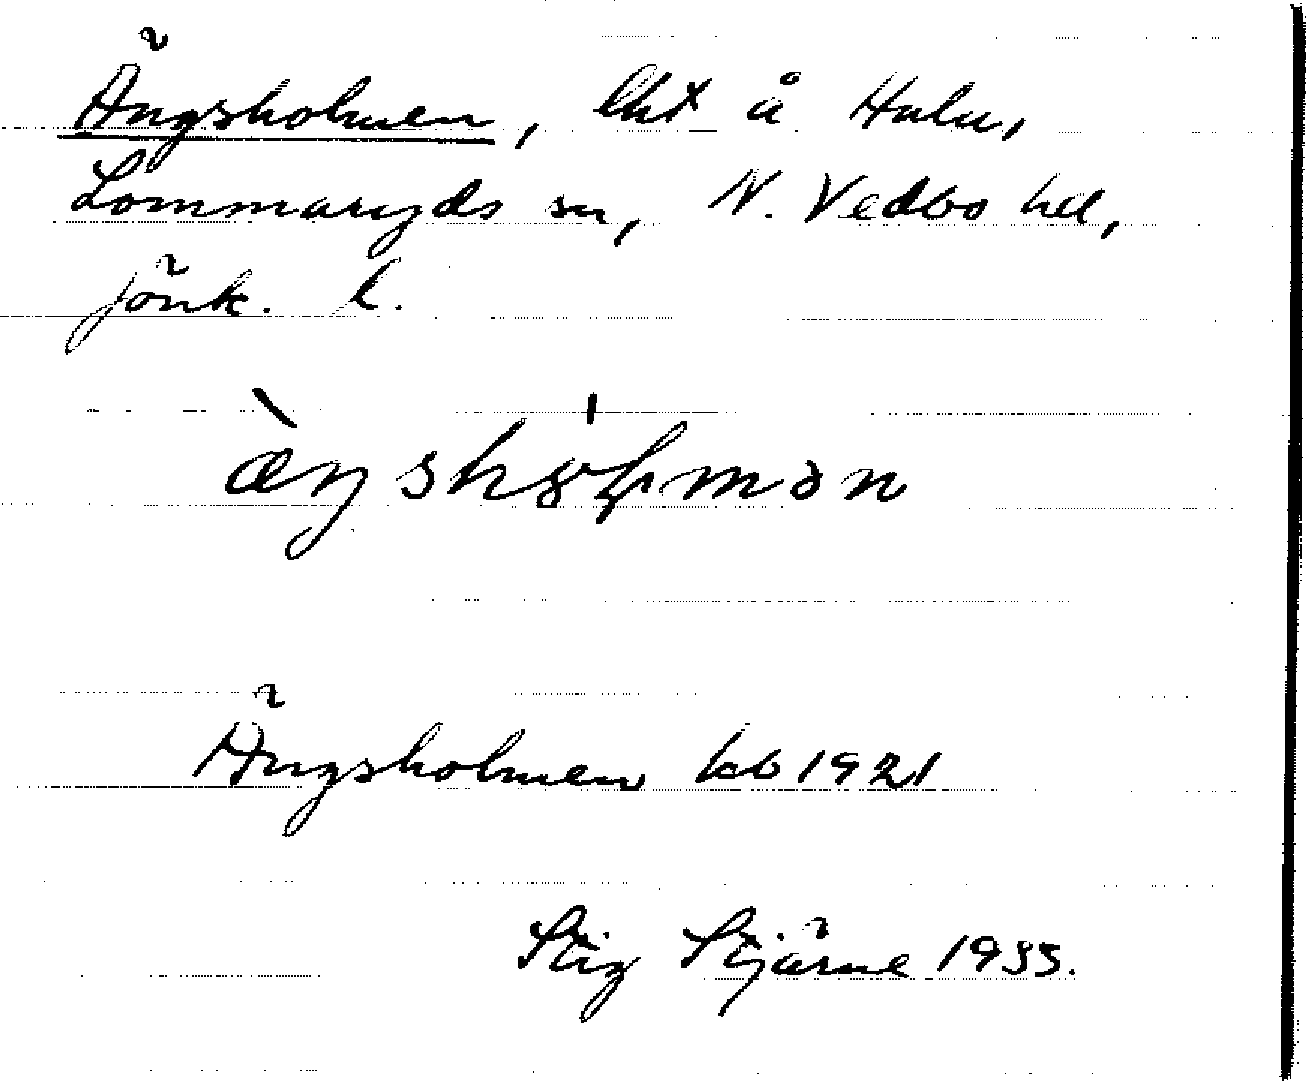 Ängsholmen, lht å Hulu,
Lommaryds sn, N. Vedbo hd,
Jönk. l.
Ängsholmen kb 1921
Stig Stjärne 1933.